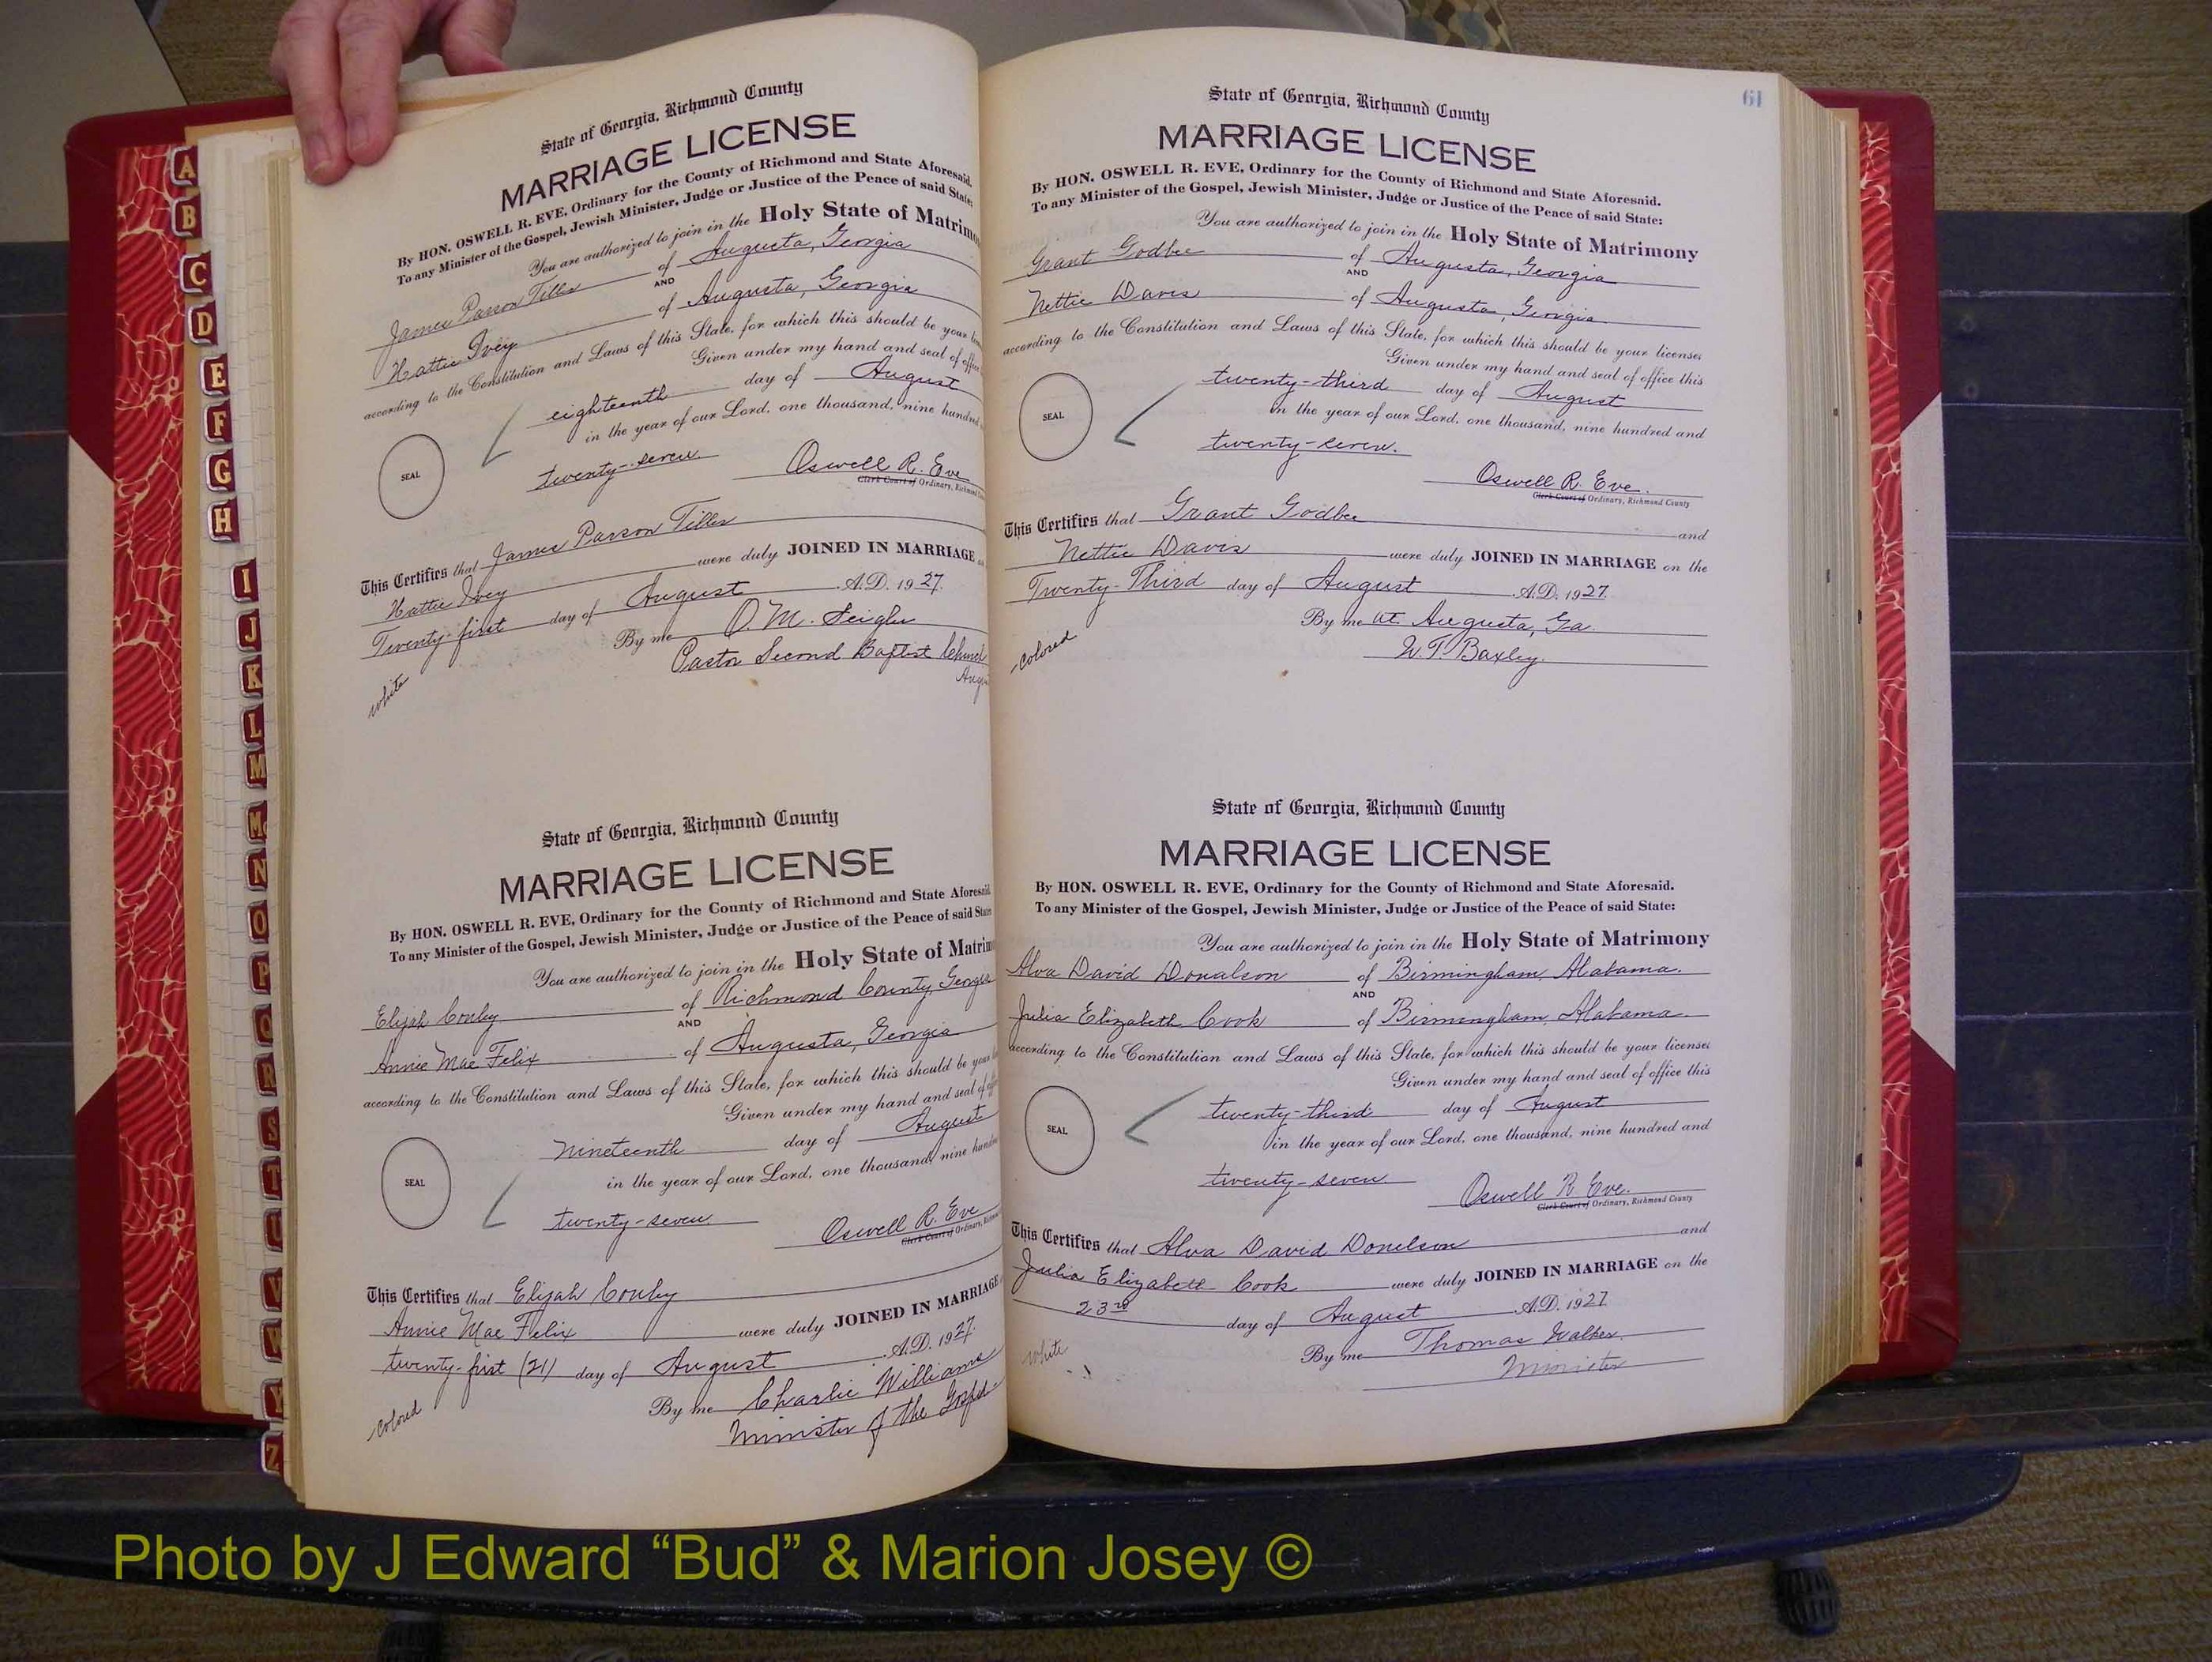 State of Georgia, Richmond County
MARRIAGE LICENSE
By HON. OSWELL R. EVE, Ordinary for the County of Richmond and State Aforesaid.
To any Minister of the Gospel, Jewish Minister, Judge or Justice of the Peace of said State:
You are authorized to join in the Holy State of Matrimo
James Parson Tiller of Augusta, Georgia
AND
Hattie Ivey of Augusta, Georgia
according to the Constitution and Laws of this State, for which this should be your
Given under my hand and seal of office
eighteenth day of August
in the year of our Lord, one thousand, nine hundred
SEAL
twenty-seven
Oswell R. Eve
Clerk Court of Ordinary, Richmond
This Certifies that James Parson Tiller
Hattie Ivey were duly JOINED IN MARRIAGE
Twenty-first day of August A.D. 1927.
By me O. M. Seigler
Pastor Second Baptist Church
Augu
white
State of Georgia, Richmond County
MARRIAGE LICENSE
By HON. OSWELL R. EVE, Ordinary for the County of Richmond and State Aforesaid
To any Minister of the Gospel, Jewish Minister, Judge or Justice of the Peace of said State
You are authorized to join in the Holy State of Matrim
Elijah Conley of Richmond County, Georgia
AND
Annie Mae Felix of Augusta, Georgia
according to the Constitution and Laws of this State, for which this should be your
Given under my hand and seal of
nineteenth day of August
in the year of our Lord, one thousand, nine hundre
SEAL
twenty-seven
Oswell R. Eve
Clerk Court of Ordinary, Richmond
This Certifies that Elijah Conley
Annie Mae Felix were duly JOINED IN MARRIAGE
twenty-first (21) day of August A.D. 1927.
By me Charlie Williams
Minister of the Gospel
colored
61
State of Georgia, Richmond County
MARRIAGE LICENSE
By HON. OSWELL R. EVE, Ordinary for the County of Richmond and State Aforesaid.
To any Minister of the Gospel, Jewish Minister, Judge or Justice of the Peace of said State:
You are authorized to join in the Holy State of Matrimony
Grant Godbee of Augusta, Georgia
AND
Nettie Davis of Augusta, Georgia
according to the Constitution and Laws of this State, for which this should be your license
Given under my hand and seal of office this
twenty-third day of August
in the year of our Lord, one thousand, nine hundred and
SEAL
twenty-seven.
Oswell R. Eve.
Clerk Court of Ordinary, Richmond County
This Certifies that Grant Godbee and
Nettie Davis were duly JOINED IN MARRIAGE on the
Twenty-Third day of August A.D. 1927
By me at Augusta, Ga.
W. T. Baxley.
colored
State of Georgia, Richmond County
MARRIAGE LICENSE
By HON. OSWELL R. EVE, Ordinary for the County of Richmond and State Aforesaid.
To any Minister of the Gospel, Jewish Minister, Judge or Justice of the Peace of said State:
You are authorized to join in the Holy State of Matrimony
Alva David Donalson of Birmingham, Alabama.
AND
Julia Elizabeth Cook of Birmingham, Alabama.
according to the Constitution and Laws of this State, for which this should be your license
Given under my hand and seal of office this
twenty-third day of August
in the year of our Lord, one thousand, nine hundred and
SEAL
twenty-seven
Oswell R Eve.
Clerk Court of Ordinary, Richmond County
This Certifies that Alva David Donelson and
Julia Elizabeth Cook were duly JOINED IN MARRIAGE on the
23rd day of August A.D. 1927
By me Thomas Walker.
Minister
white
A
B
C
D
E
F
G
H
I
J
K
L
M
Mc
N
O
P
Q
R
S
T
U
V
W
Y
Z
Photo by J Edward “Bud” & Marion Josey ©